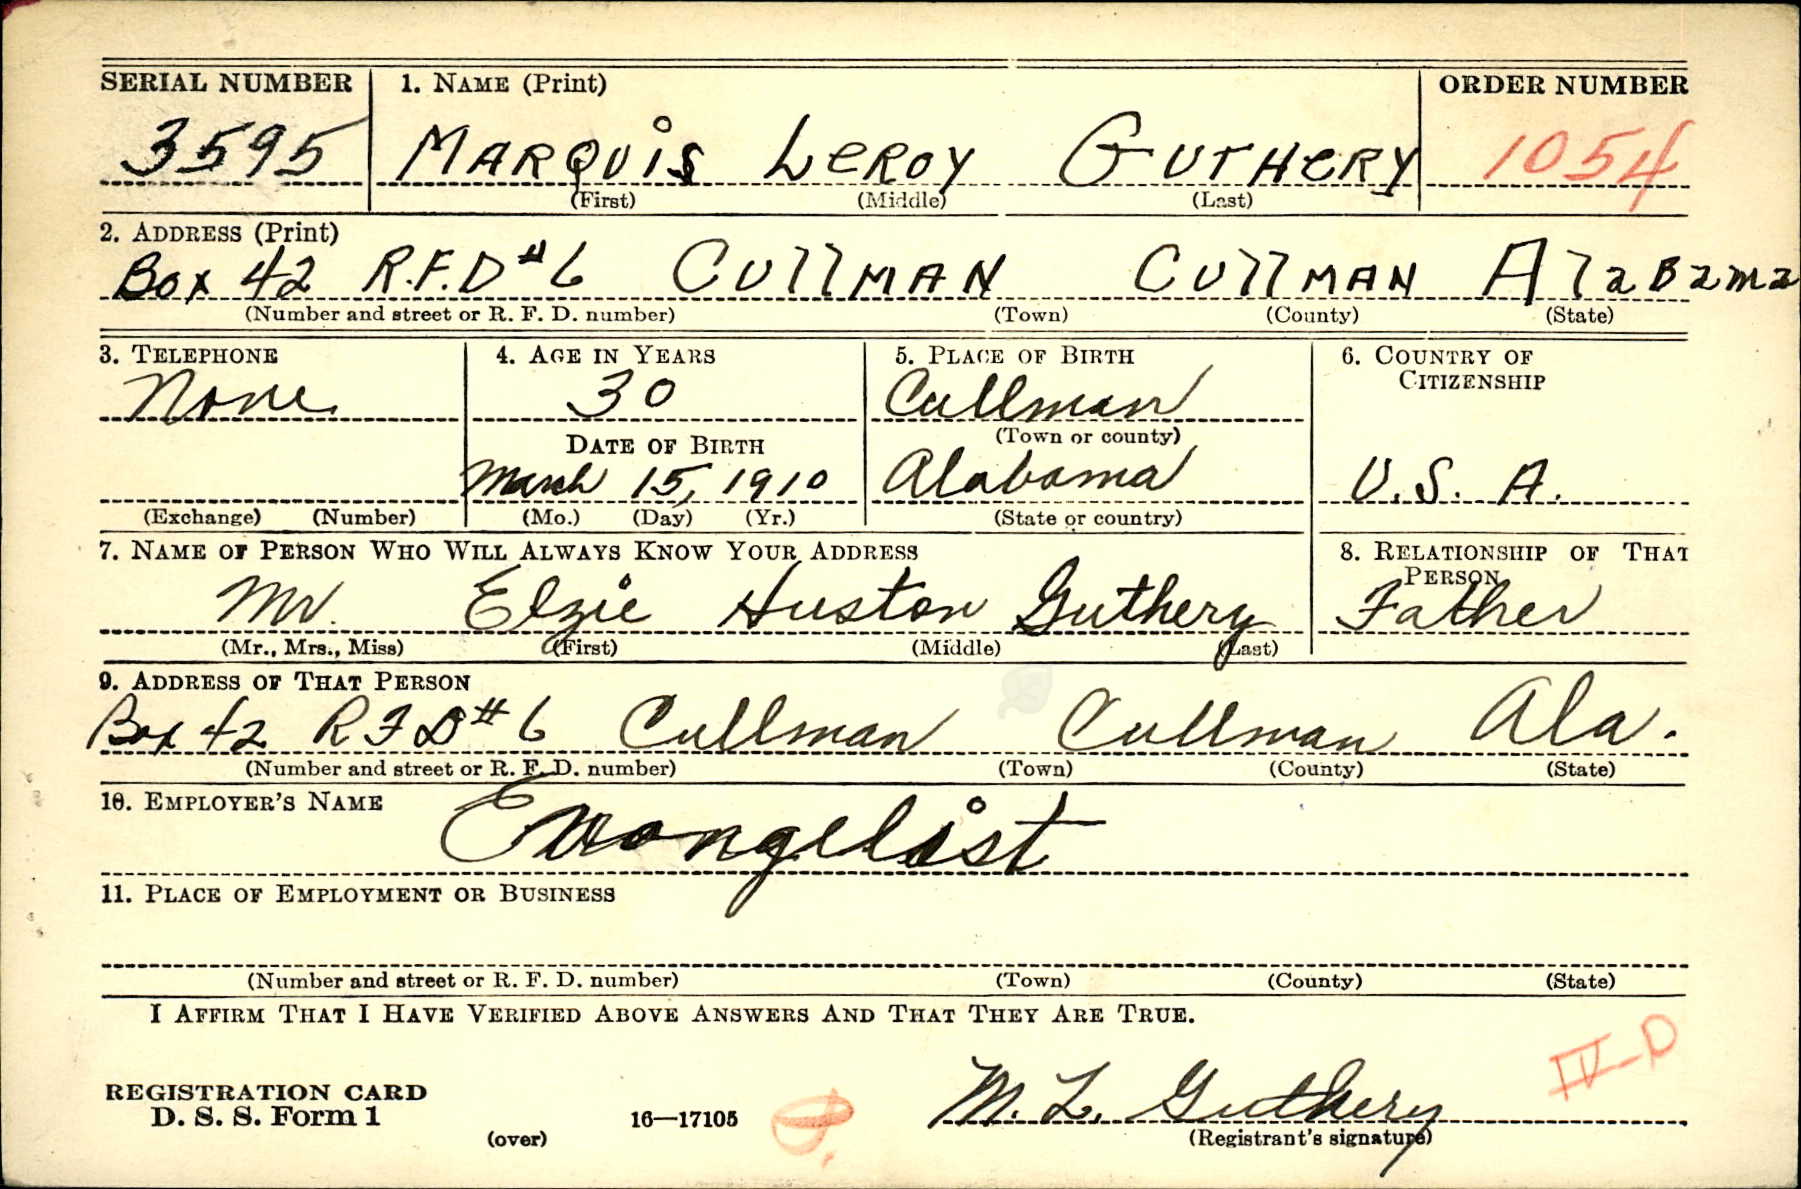 SERIAL NUMBER 1. NAME (Print) ORDER NUMBER
3595 MARQUIS LEROY GUTHERY 1054
(First) (Middle) (Last)
2. ADDRESS (Print)
Box 42 R.F.D #6 CullMAN CullMAN AlaBama
(Number and street or R. F. D. number) (Town) (County) (State)
3. TELEPHONE 4. AGE IN YEARS 5. PLACE OF BIRTH 6. COUNTRY OF
CITIZENSHIP
None 30 Cullman
DATE OF BIRTH (Town or county)
March 15, 1910 Alabama U.S.A.
(Exchange) (Number) (Mo.) (Day) (Yr.) (State or country)
7. NAME OF PERSON WHO WILL ALWAYS KNOW YOUR ADDRESS 8. RELATIONSHIP OF THAT
PERSON
Mr. Elzie Huston Guthery Father
(Mr., Mrs., Miss) (First) (Middle) (Last)
9. ADDRESS OF THAT PERSON
Box 42 RFD #6 Cullman Cullman Ala.
(Number and street or R. F. D. number) (Town) (County) (State)
10. EMPLOYER'S NAME
Evangelist
11. PLACE OF EMPLOYMENT OR BUSINESS
(Number and street or R. F. D. number) (Town) (County) (State)
I AFFIRM THAT I HAVE VERIFIED ABOVE ANSWERS AND THAT THEY ARE TRUE.
IV-D
REGISTRATION CARD M. L. Guthery
D. S. S. Form 1 16—17105
(over) (Registrant's signature)